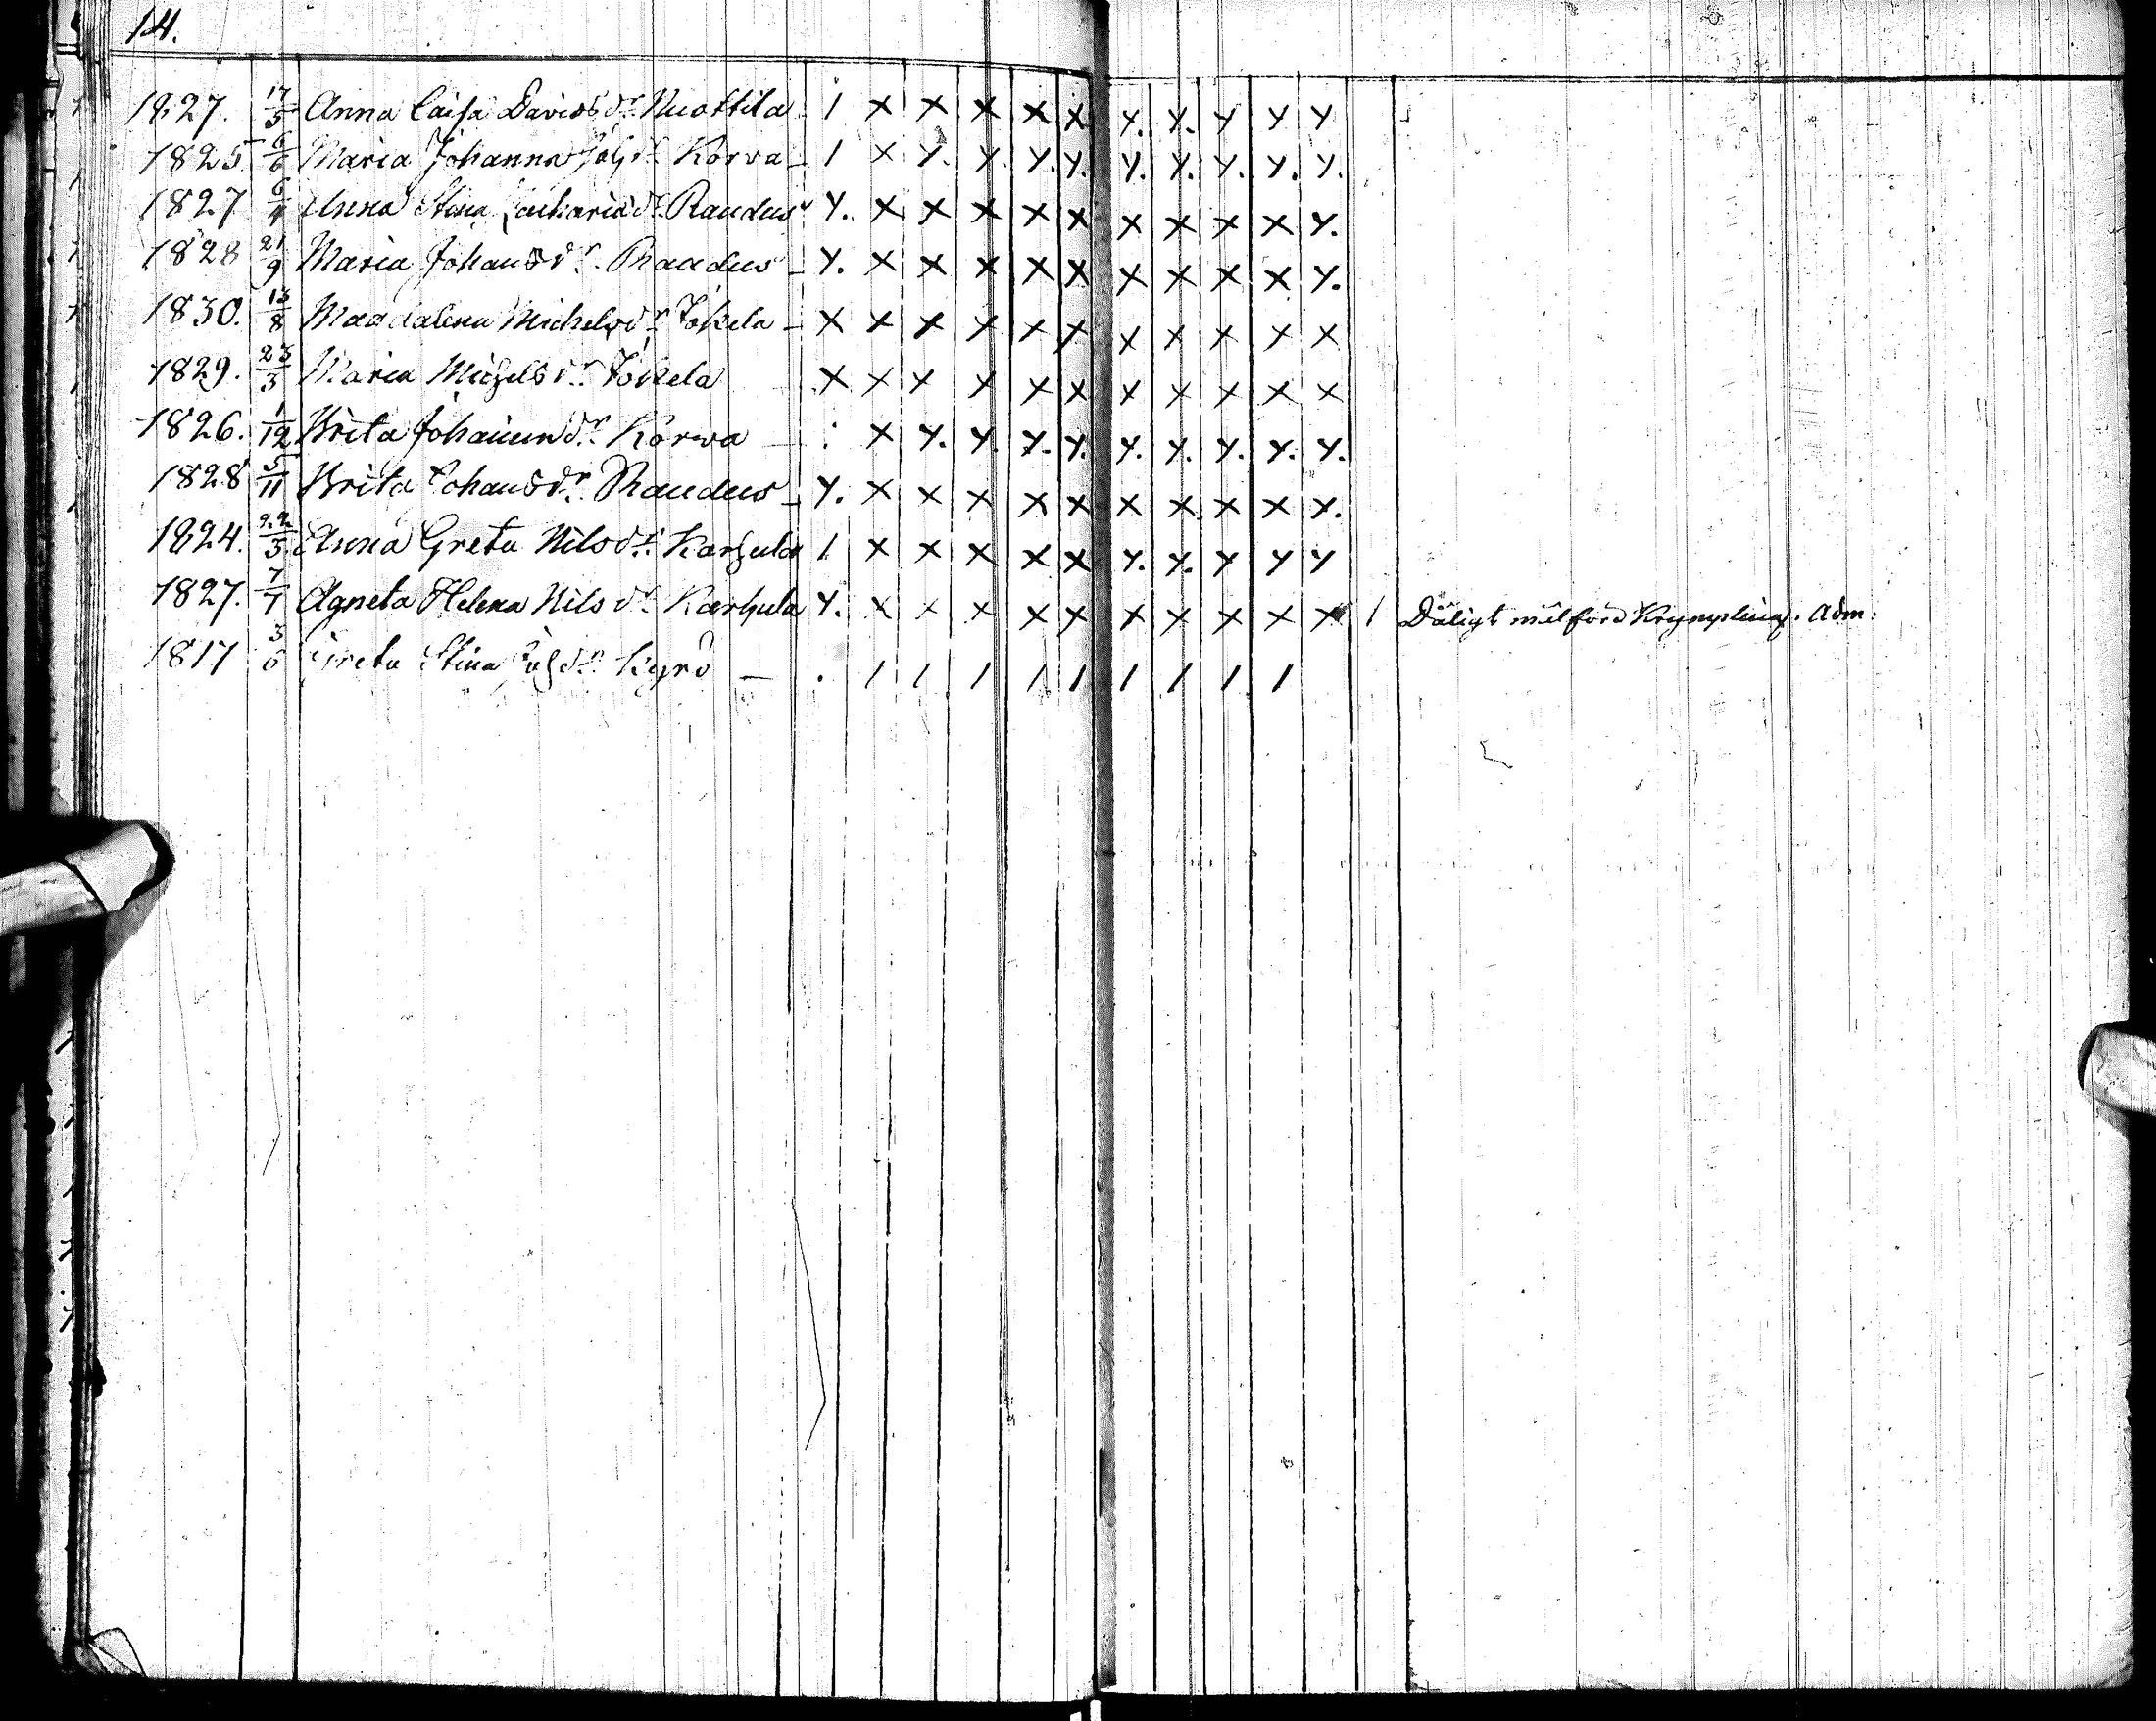 14.
1827. 17/3 Anna Caisa Davids dr. Nuottila 1 x x x x x y. y. y y y
1825 6/6 Maria Johanna Joh dr Korva - 1 x y. y. y. y. y. y. y. y. y.
1827 6/4 Anna Stina Zacharias dr. Raudus y. x x x x x x x x x y.
1828 21/9 Maria Johans dr. Raudus - y. x x x x x x x x x y.
1830. 13/8 Magdalena Michels dr Jokela - x x x x x x x x x x x
1829. 23/3 Maria Michels dr. Jokela x x x x x x x x x x x
1826. 1/12 Brita Johann dr. Korwa x y. y. y. y. y. y. y. y. y.
1828 5/11 Brita Johans dr. Raudus - y. x x x x x x x x x y.
1824. 22/3 Anna Greta Nils dr. Karhula 1 x x x x x y. y. y y y
1827. 7/1 Agneta Helena Nils dr. Karhula y. x x x x x x x x x x 1 Dåligt målförd Krympling. Adm.
1817 3/6 Greta Stina dr. Kyrö - . / / / / / / / / /